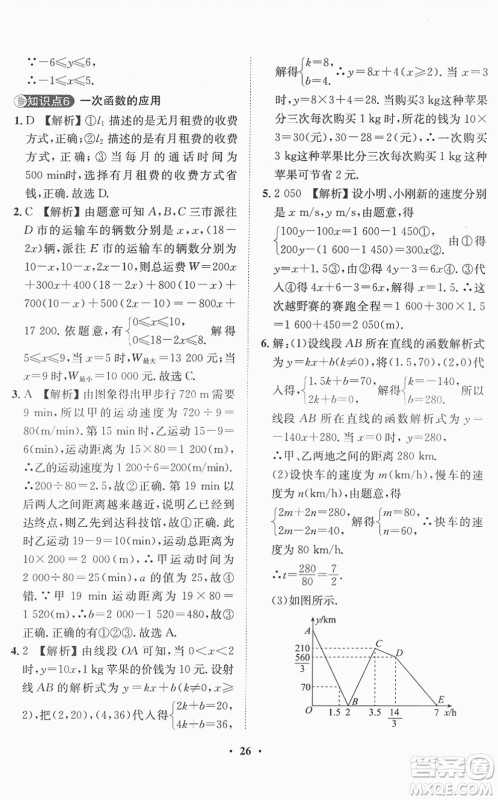 ∵-1≤y≤6,
∴-1≤x≤5.
知识点6 一次函数的应用
1. D 【解析】①l₁描述的是无月租费的收费
方式,正确;②l₂描述的是有月租费的收费
方式,正确;③当每月的通话时间为
500 min时,选择有月租费的收费方式省
钱,正确.故选D.
2. C 【解析】由题意可知A,B,C三市派往
D市的运输车的辆数分别为x,x,(18-
2x)辆,派往E市的运输车的辆数分别为
10-x,10-x,(2x-10)辆,则总运费
+17 200.依题意,有{0≤x≤10, 0≤18-2x≤8. 解得
5≤x≤9.当x=5时,W最大=13 200元;当
3. A 【解析】由图象得出甲步行720 m需要
9 min,所以甲的运动速度为720÷9=
80(m/min).当第15 min时,乙运动15-
9=6(min),运动距离为15×80=1 200(m),
∴乙的运动速度为1 200÷6=200(m/min),
∴200÷80=2.5,故②正确.当第19 min以
后两人之间距离越来越近,说明乙已经到
达终点,则乙先到达科技馆,故①正确.此
时乙运动19-9=10(min),运动总距离为
10×200=2 000(m),∴甲运动时间为
2 000÷80=25(min),故a的值为25,故④
错误.∵甲19 min运动距离为19×80=
1 520(m),∴b=2 000-1 520=480,故③
正确.故正确的有①②③.故选A.
4. 2 【解析】由线段OA可知当0<x<2
时,y=10x,1 kg苹果的价钱为10元.设射
线AB的函数解析式为y=kx+b(x≥
2),把点(2,20),(4,36)代入得{2k+b=20, 4k+b=36,
解得{k=8, b=4, ∴y=8x+4.当x=3时,y=
8×3+4=28.当购买3 kg这种苹果分三
次每次购买1 kg时,所花的钱为10×3=
30(元),30-28=2(元).∴一次购买3 kg
这种苹果比分三次每次购买1 kg这种苹
果可节省2元.
5. 2 050 【解析】设小明、小刚新的速度分别
是x m/s,y m/s,由题意得
{100y-100x=1 600-1 450,
解得 ∴这
次越野赛的赛跑全程=1 600+300×1.5=
1 600+450=2 050(m).
6. 解:(1)设线段AB所在直线的函数解析式
为y=kx+b,将(1.5,70),(2,0)代
入得,{1.5k+b=70, 2k+b=0, 解得{k=-140, b=280, 所以
线段AB所在的直线的函数解析式为y=
-140x+280,当x=0时,y=280.
(2)设快车的速度为m(km/h),慢车的速
度为n(km/h),由题意得
{2m+2n=280,
解得{m=80, n=60. ∴快车的速
度为80 km/h.
∴t=280/80=7/2.
(3)如图所示.
y/km
210
560/3
70
O
1.5
2
3.5
14/3
7
x/h
A
B
C
D
E
• 26 •
答案圈